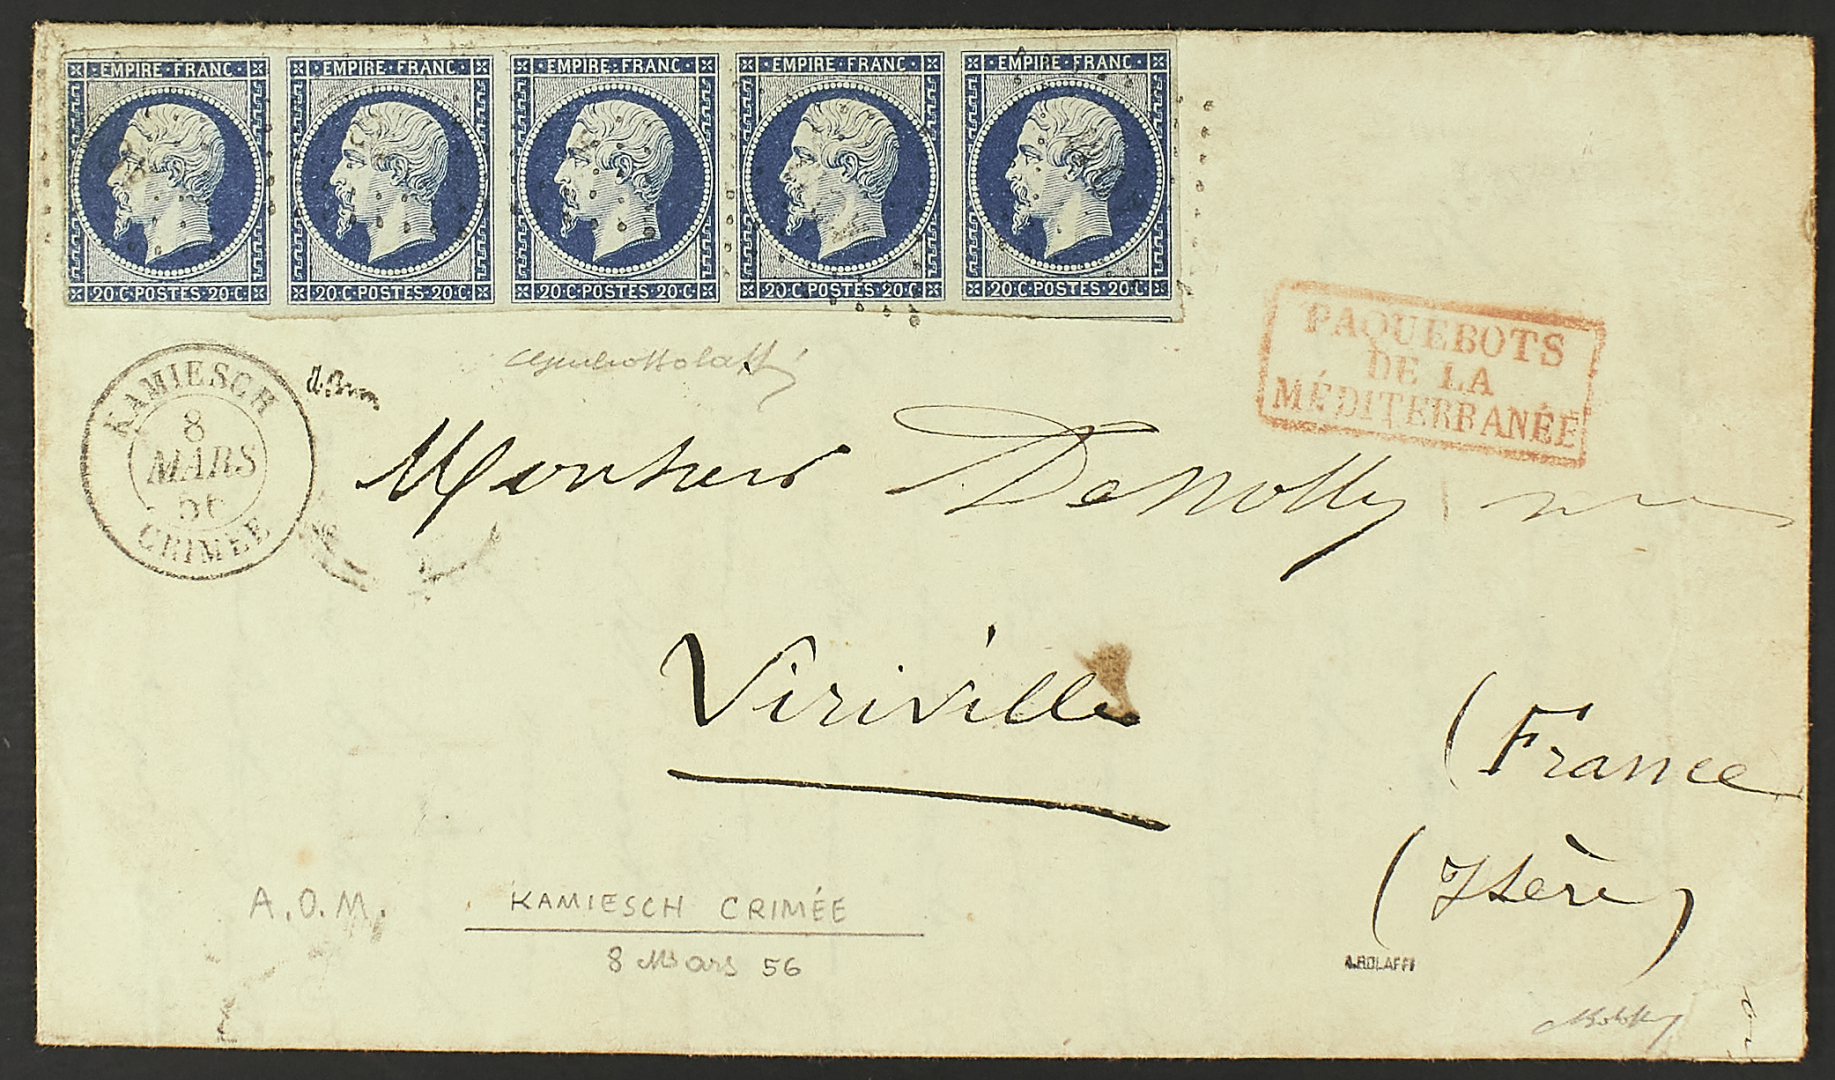 EMPIRE·FRANC EMPIRE·FRANC EMPIRE·FRANC EMPIRE·FRANC EMPIRE·FRANC
20·C·POSTES·20·C 20·C·POSTES·20·C 20·C·POSTES·20·C 20·C·POSTES·20·C 20·C·POSTES·20·C
PAQUEBOTS
DE LA
MÉDITERRANÉE
KAMIESCH
8
MARS
56
CRIMÉE
Monsieur
Viriville
(France
(Isère)
A.O.M.
KAMIESCH CRIMÉE
8 Mars 56
A.BOLAFFI